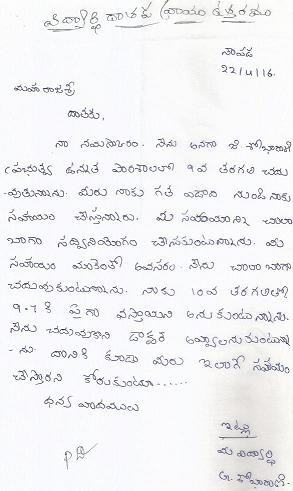 విద్యార్థి దాతకు వ్రాయు ఉత్తరము
సాపడ
22/4/16.
మహారాజశ్రీ
దాతకు,
నా నమస్కారం. నేను అనగా జి. శోభారాణి
ప్రభుత్వ ఉన్నత పాఠశాలలో 9వ తరగతి చదు
-వుతున్నాను. మీరు నాకు గత ఏడాది నుండి నాకు
సహాయం చేస్తున్నారు. మీ సహాయాన్ని చాలా
బాగా సద్వినియోగం చేసుకుంటున్నాను. మీ
సహాయం మాకెంతో అవసరం. నేను చాలా బాగా
చదువుకుంటున్నాను. నాకు 10వ తరగతిలో
9.7 కి పైగా వస్తాయని అనుకుంటున్నాను.
నేను చదువుకొని డాక్టర్ అవ్వాలనుకుంటున్నా
-ను. దానికి కూడా మీరు ఇలాగే సహాయం
చేస్తారని కోరుకుంటూ......
ధన్యవాదములు
ఇట్లు
మీ విద్యార్థి
G. శోభారాణి.